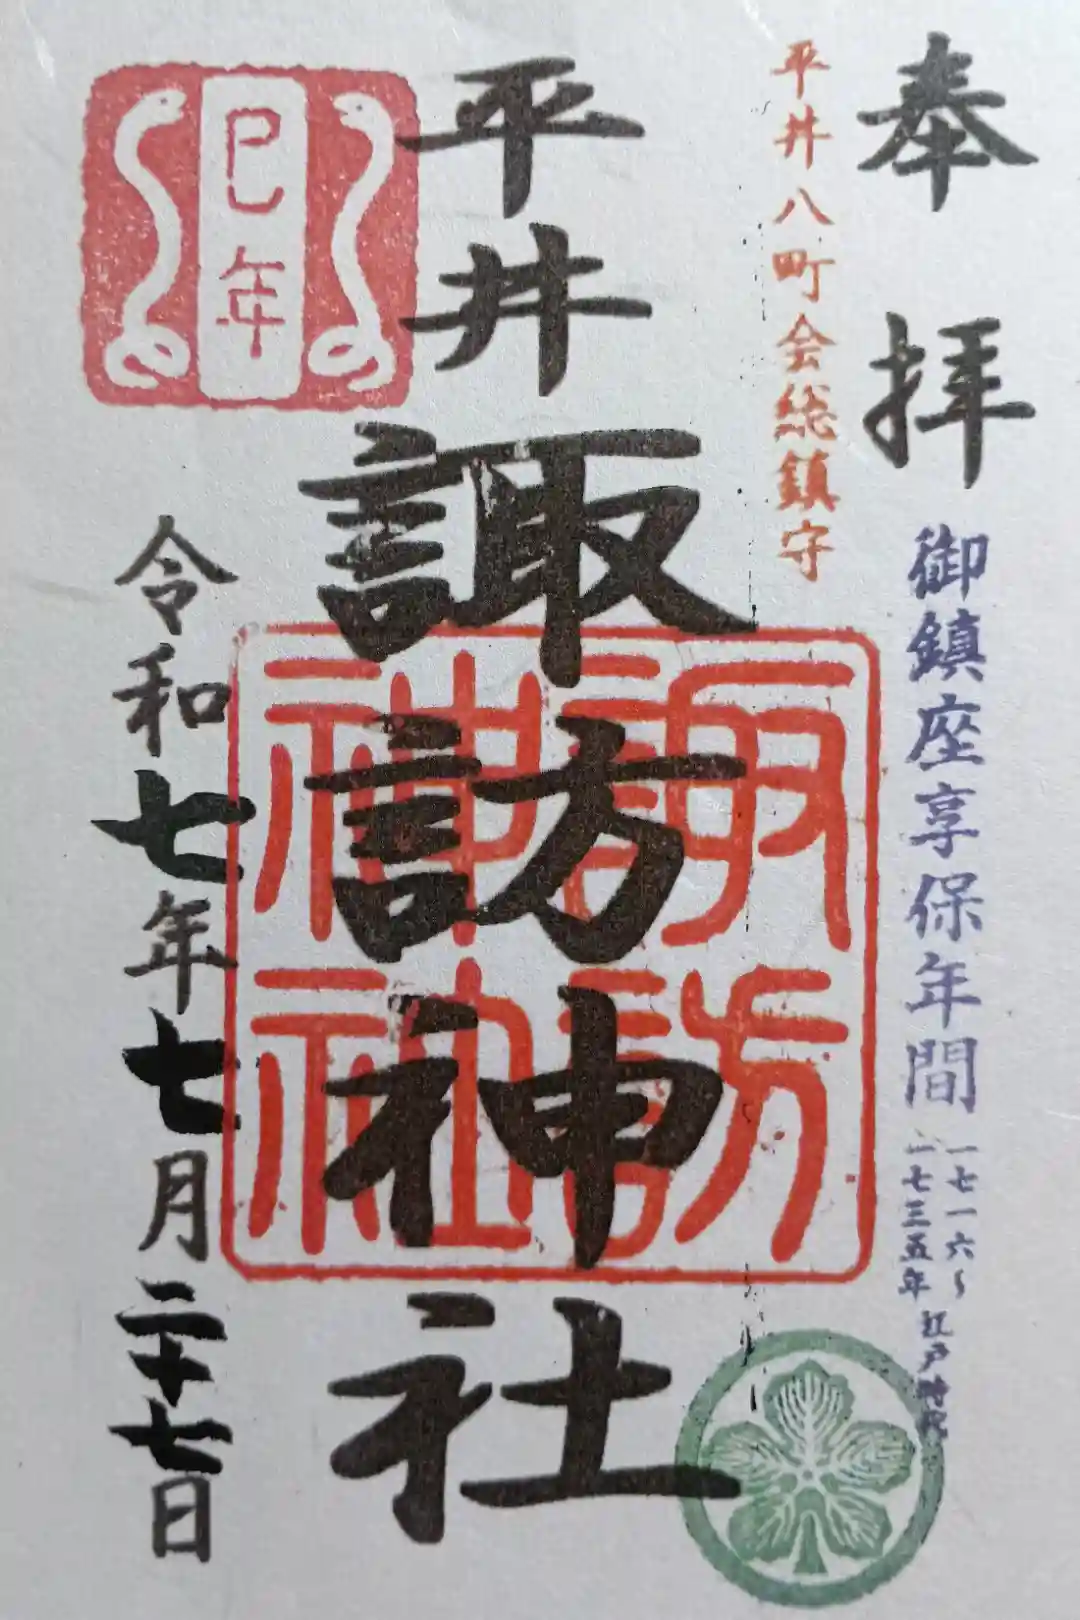 奉拝
御鎮座享保年間
一七一六〜
一七三五年
江戸時代
平井八町会総鎮守
平井諏訪神社
諏訪
神社
巳年
令和七年七月二十七日